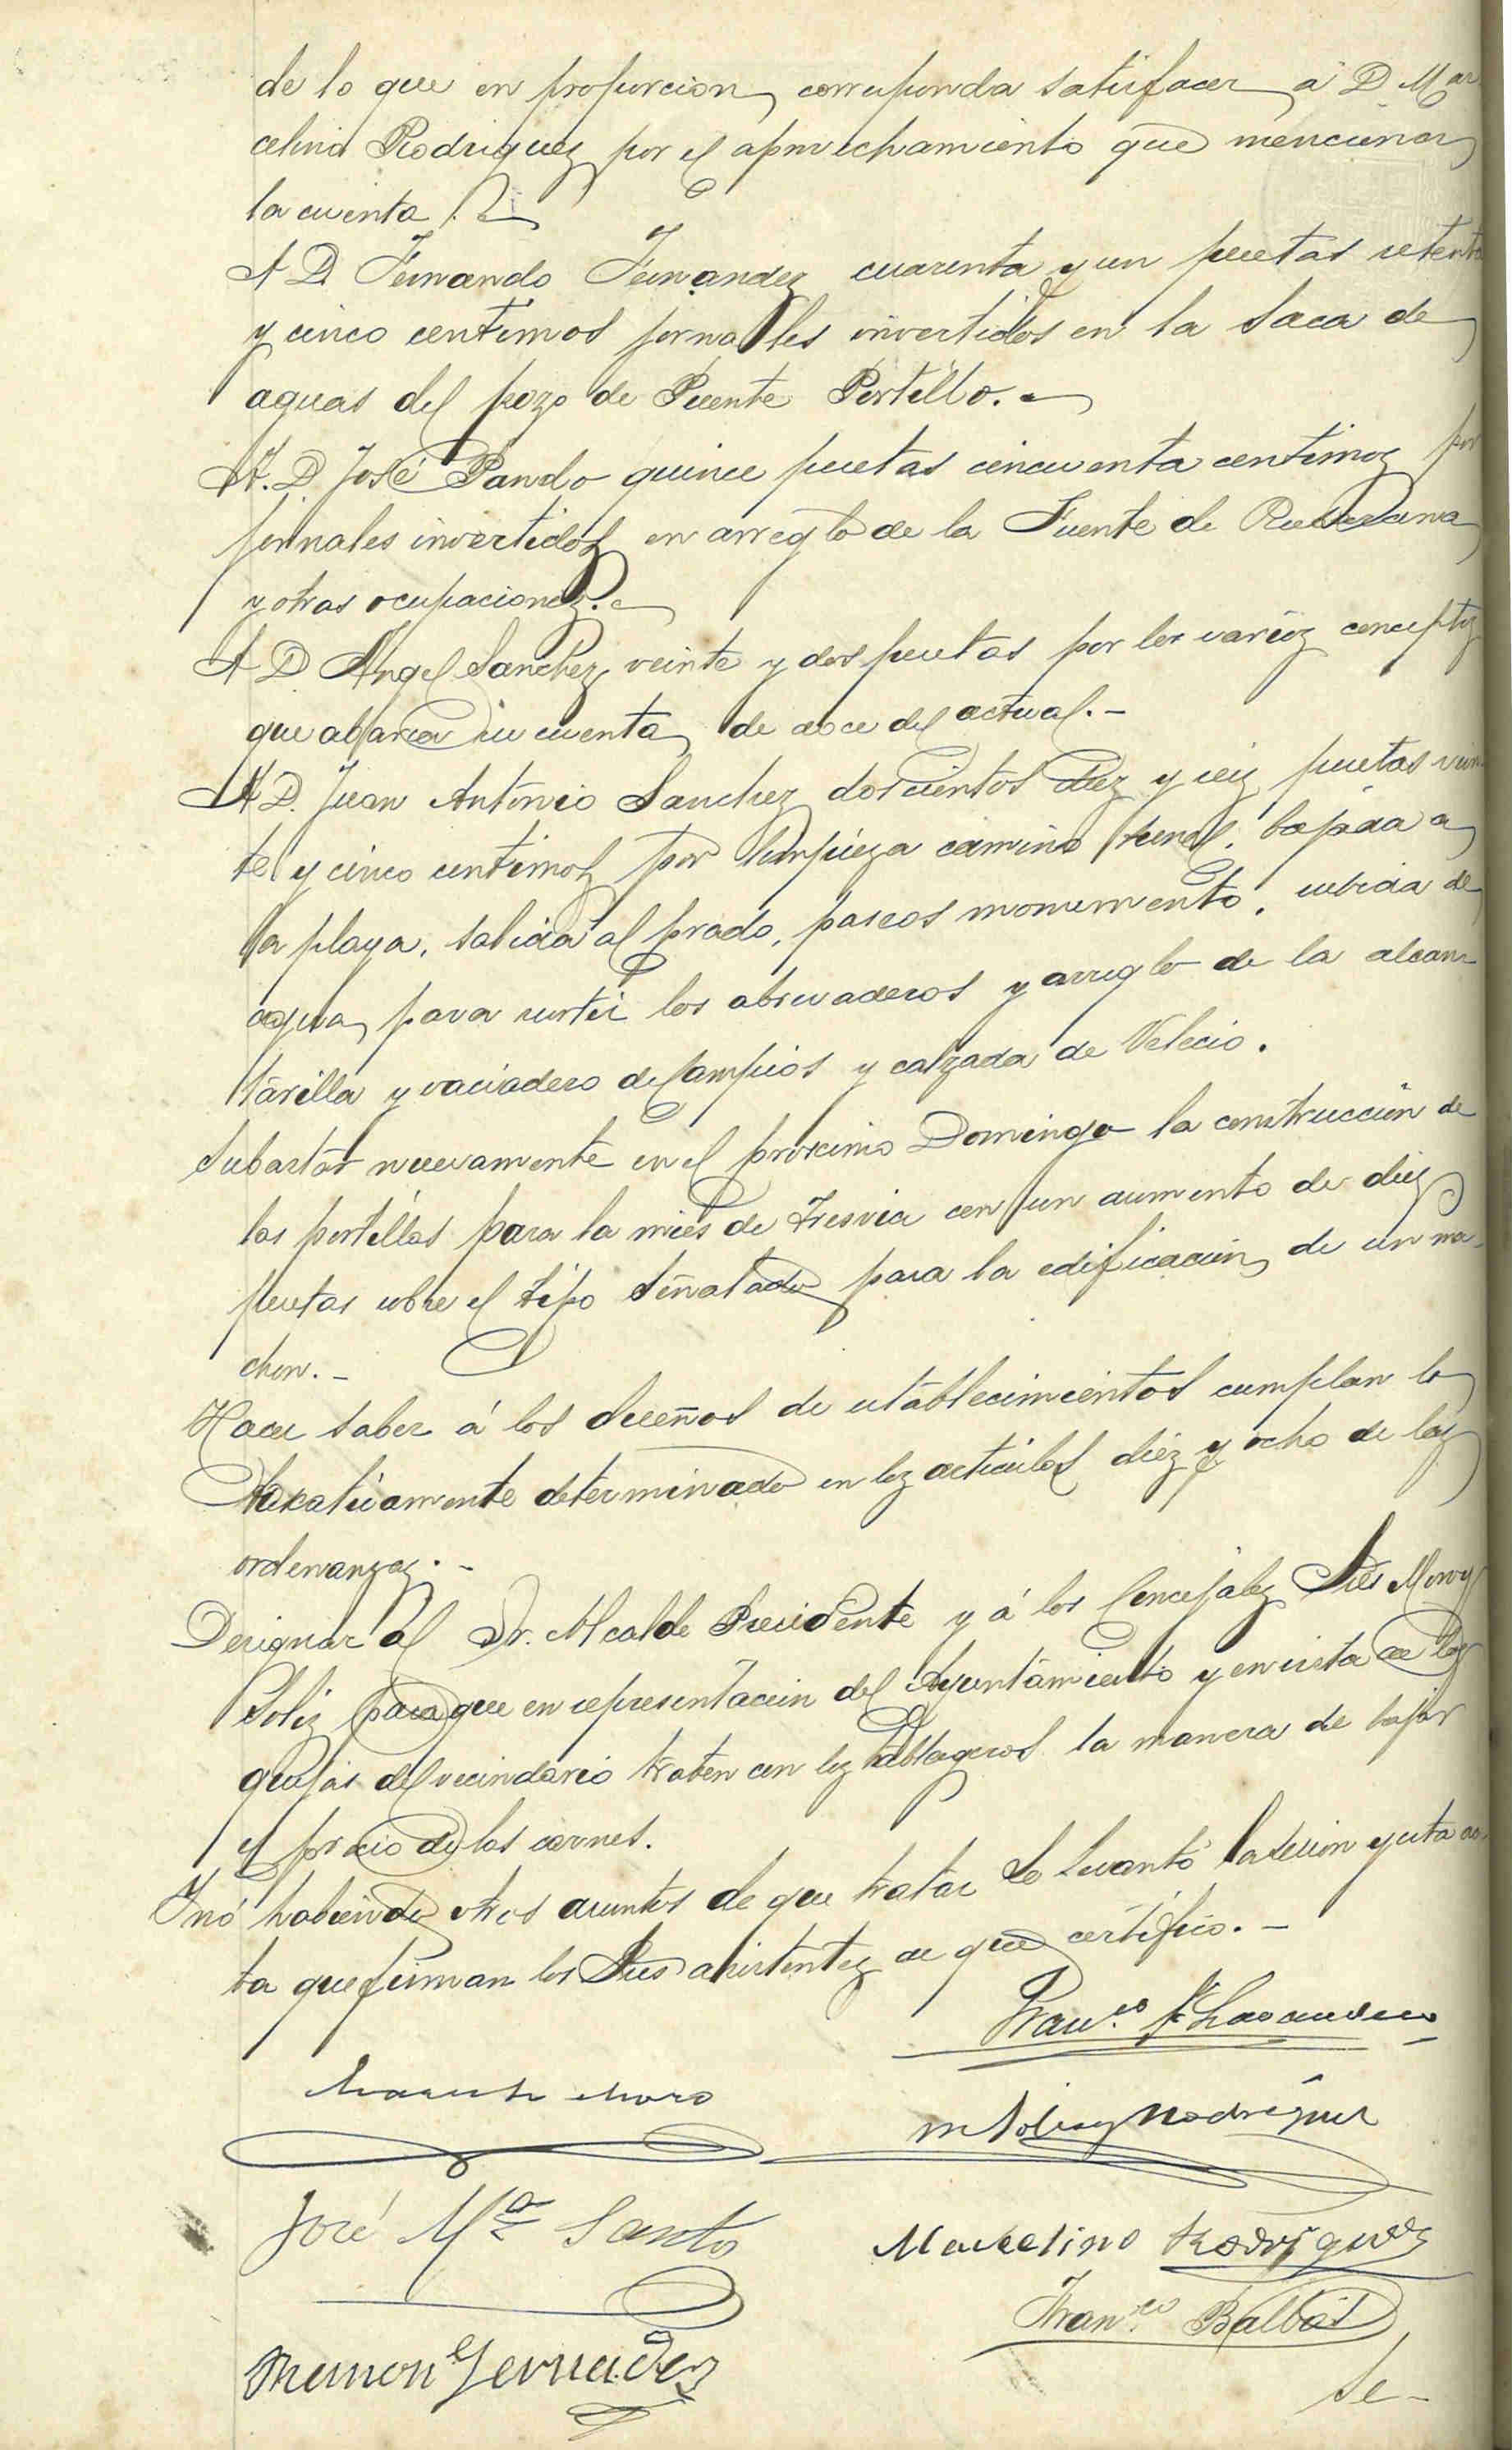 de lo que en proporcion corresponda satisfacer á D. Mar
celino Rodriguez por el aprovechamiento que menciona
la cuenta.
A D. Fernando Fernandez cuarenta y un pesetas setenta
y cinco centimos jornales invertidos en la saca de
aguas del pozo de Puente Portillo.
A. D. José Pando quince pesetas cincuenta centimos por
jornales invertidos en arreglo de la Fuente de
y otras ocupaciones.
A D Angel Sanchez veinte y dos pesetas por los varios conceptos
que abarca su cuenta de doce del actual.-
A D. Juan Antonio Sanchez doscientos diez y seis pesetas vein
te y cinco centimos por limpieza camino bajada a
la playa, salida al prado, paseos monumento, subida de
agua para surtir los abrevaderos y arreglo de la alcan-
tarilla y vaciadero de Campios y calzada de Velecio.
Subastar nuevamente en el proximo Domingo la construccion de
las portillas para la mies de Tresvia con un aumento de diez
pesetas sobre el tipo señalado para la edificacion de un ma-
chon.-
Hacer saber á los dueños de establecimientos cumplan lo
taxativamente determinado en los articulos diez y ocho de las
ordenanzas.-
Designar al Sr. Alcalde Presidente y á los Concejales Sres Moro y
Soliz para que en representacion del Ayuntamiento y en vista de las
quejas del vecindario traten con los tablageros la manera de bajar
el precio de las carnes.
Y nó habiendo otros asuntos de que tratar se levantó la sesion y esta ac-
ta que firman los Sres asistentes de que certifico.-
Franco.
Moro
M Soliz y Rodriguez
José Ma Santos
Marcelino Rodriguez
Franco. Balbás
Ramon Fernadez
Se-